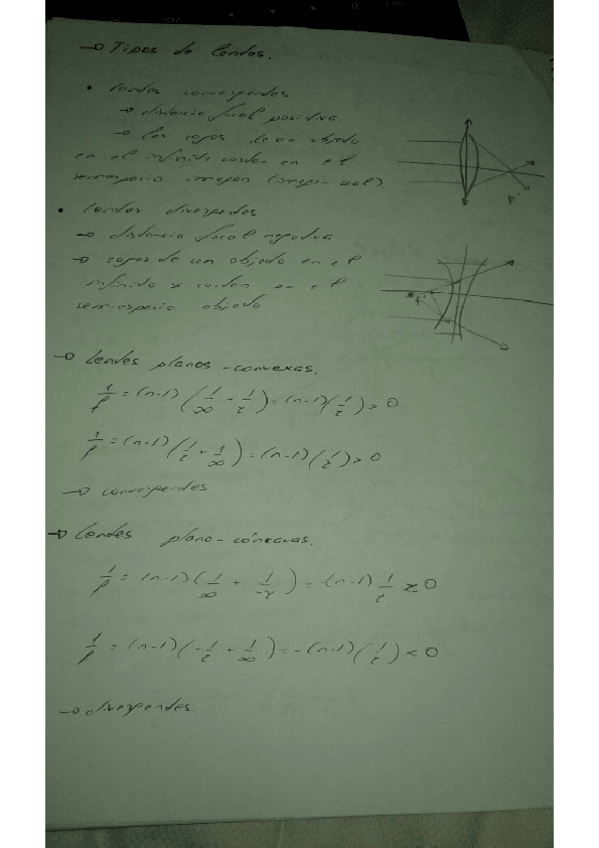 → Tipos de lentes.
• lentes convergentes
→ distancia focal positiva
→ los rayos de un objeto
en el infinito cortan en el
semiespacio imagen (imagen real)
F'
• lentes divergentes
→ distancia focal negativa
→ rayos de un objeto en el
infinito se cortan en el
semiespacio objeto
F'
→ Lentes planos-convexas.
1/f = (n-1) (1/∞ + 1/r) = (n-1) (1/r) > 0
1/f = (n-1) (1/r + 1/∞) = (n-1) (1/r) > 0
→ convergentes
→ Lentes plano-cóncavas.
1/f = (n-1) (1/∞ + 1/-r) = -(n-1) 1/r < 0
1/f = (n-1) (-1/r + 1/∞) = -(n-1) (1/r) < 0
→ divergentes